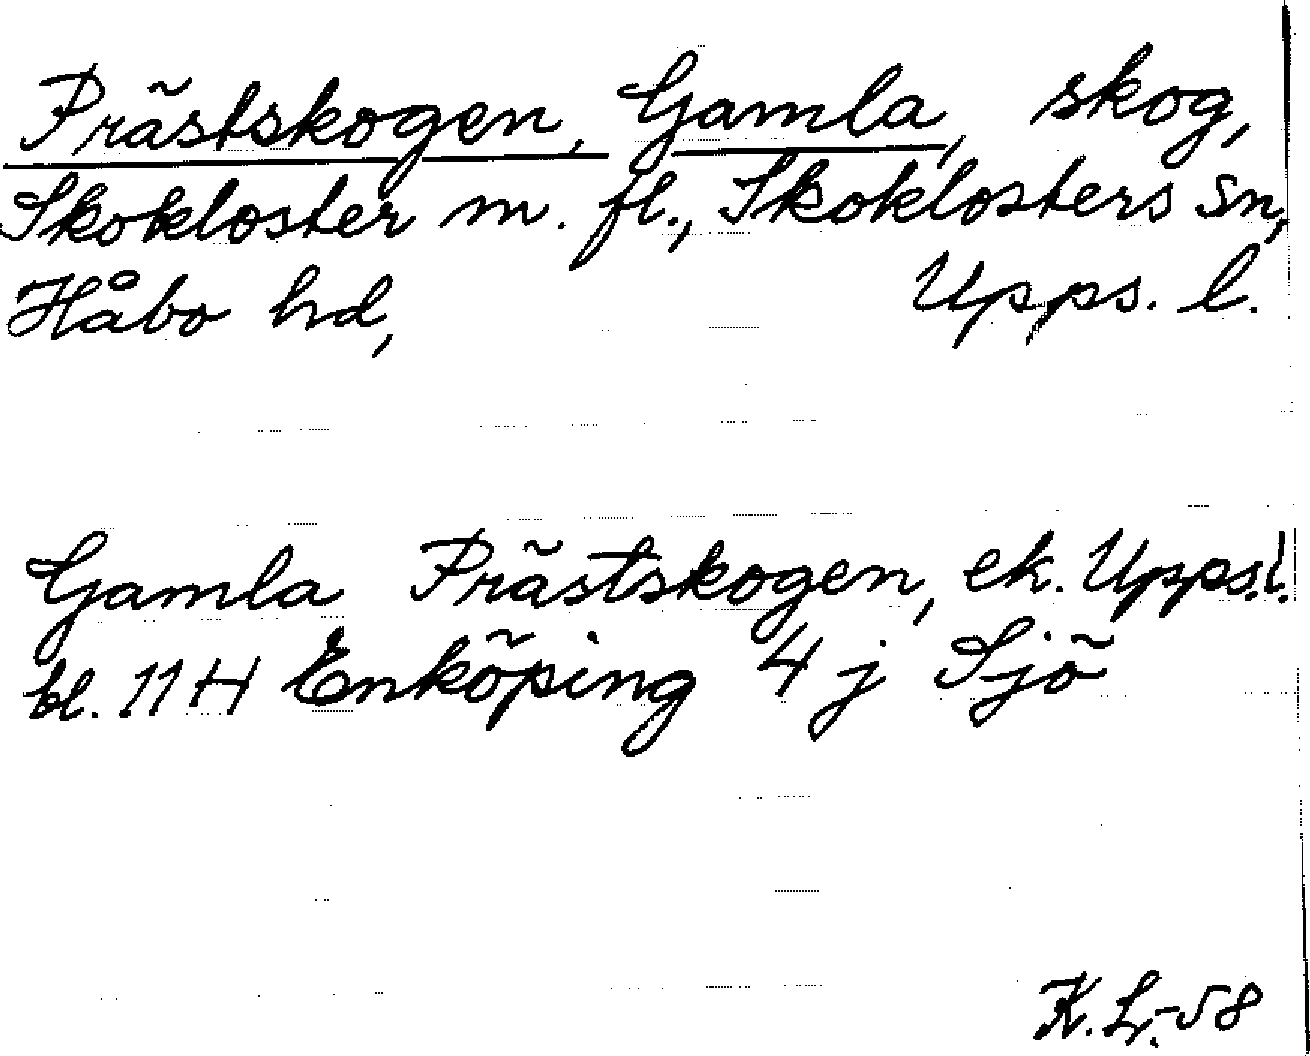 Prästskogen, Gamla, skog,
Skokloster m. fl., Skoklosters sn,
Håbo hd, Upps. l.
Gamla Prästskogen, ek. Upps. l.
bl. 11 H Enköping 4 j Sjö
K. L. -58